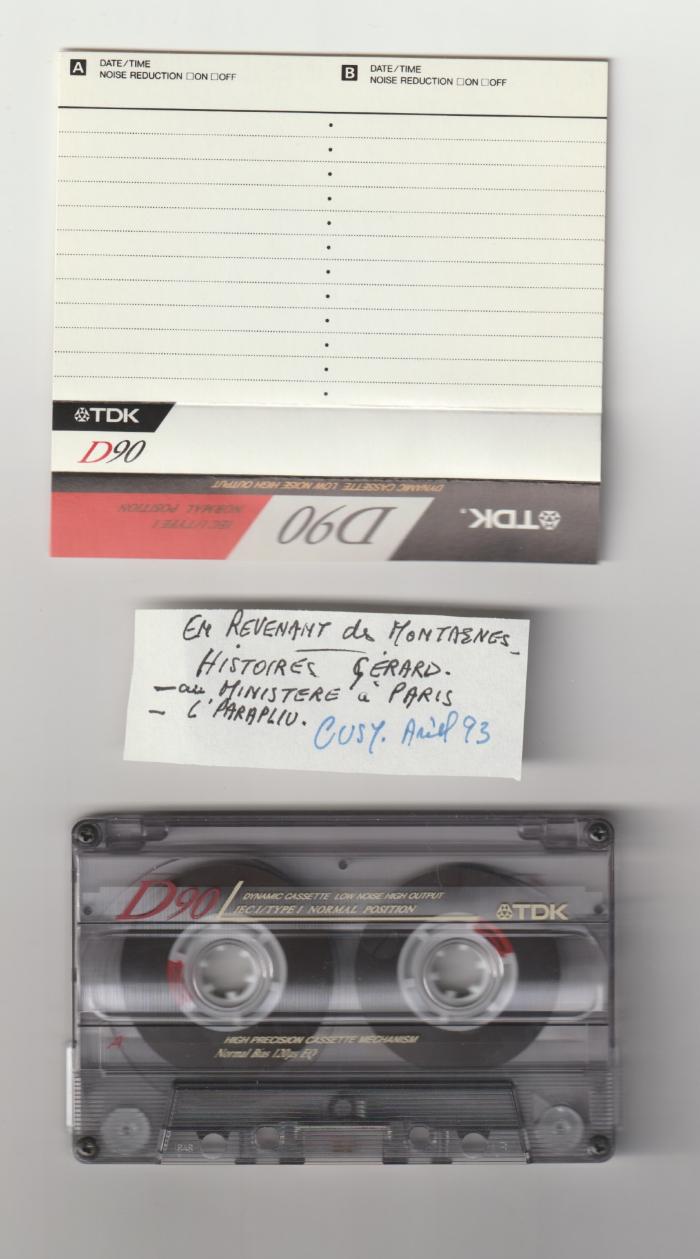 A DATE/TIME
NOISE REDUCTION □ON □OFF
B DATE/TIME
NOISE REDUCTION □ON □OFF
TDK
D90
DYNAMIC CASSETTE LOW NOISE HIGH OUTPUT
TDK.
D90
IEC I/TYPE I
NORMAL POSITION
EN REVENANT de MONTAGNES
HISTOIRES GÉRARD.
- au MINISTERE à PARIS
- L'PARAPLIU.
CUSY. Avril 93
D90
DYNAMIC CASSETTE LOW NOISE HIGH OUTPUT
IEC I/TYPE I NORMAL POSITION
TDK
A
HIGH PRECISION CASSETTE MECHANISM
Normal Bias 120μs EQ